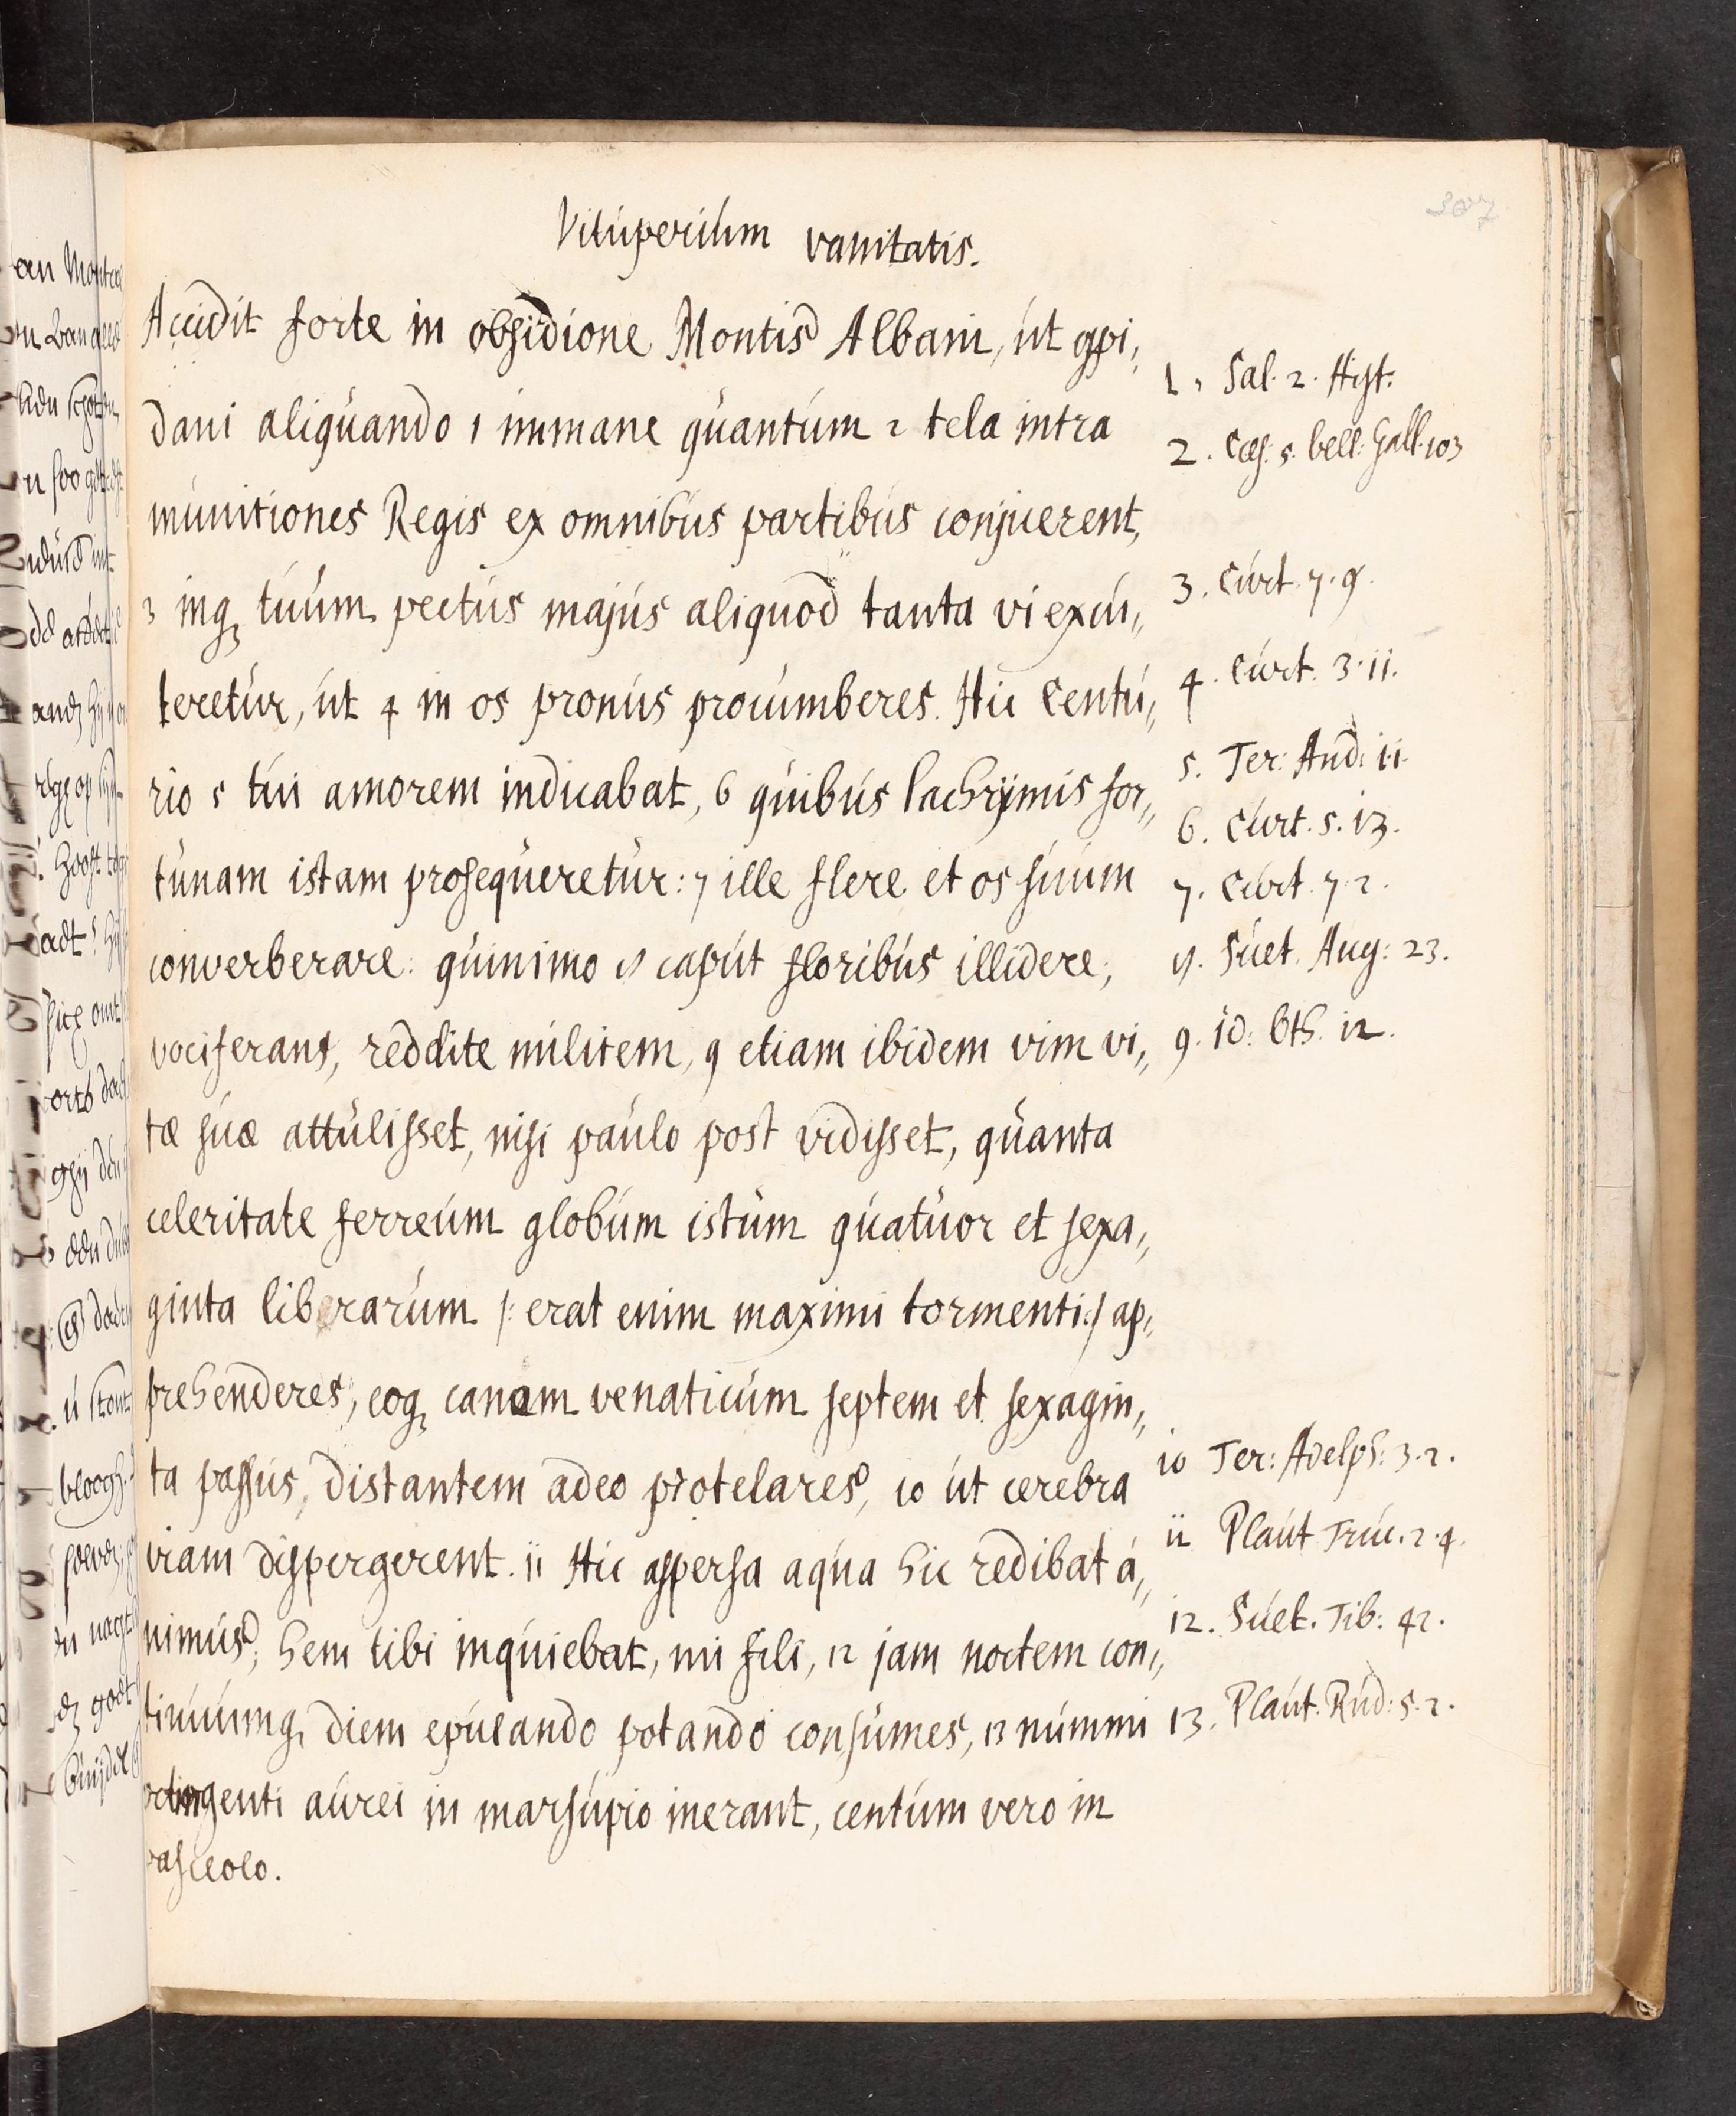 307
Vituperium vanitatis.
Accidit forte in obsidione Montis Albani, ut opi„
dani aliquando 1 immane quantum 2 tela intra
munitiones Regis ex omnibus partibus conjicerent,
3 inq3 tuum pectus majus aliquod tanta vi excu„
teretur, ut 4 in os pronus procumberes. Hic Centu„
rio 5 tui amorem indicabat, 6 quibus lachrymis for„
tunam istam prosequeretur: 7 ille flere et os suum
converberare: quinimo 8 caput floribus illidere,
vociferans, reddite militem, 9 etiam ibidem vim vi„
tæ suæ attulisset, nisi paulo post vidisset, quanta
celeritate ferreum globum istum quatuor et sexa„
ginta librarum /: erat enim maximi tormenti :/ ap„
prehenderes, eoq3 canem venaticum septem et sexagin„
ta passus, distantem adeo protelares, 10 ut cerebra
viam dispergerent. 11 Hic aspersa aqua hic redibat a„
nimus, hem tibi inquiebat, mi fili, 12 jam noctem con„
tinuumq3 diem epulando potando consumes, 13 nummi
octingenti aurei in marsupio inerant, centum vero in
pasceolo.
1. Sal. 2. Hist.
2. Cæs. 5. bell: Gall. 103
3. Curt. 7. 9.
4. Curt. 3. 11.
5. Ter: And: 1.1.
6. Curt. 5. 13.
7. Curt. 7. 2.
8. Suet. Aug: 23.
9. id: Oth. 12.
10 Ter: Adelph: 3. 2.
11 Plaut. Truc. 2. 4.
12. Suet. Tib: 42.
13. Plaut. Rud: 5. 2.